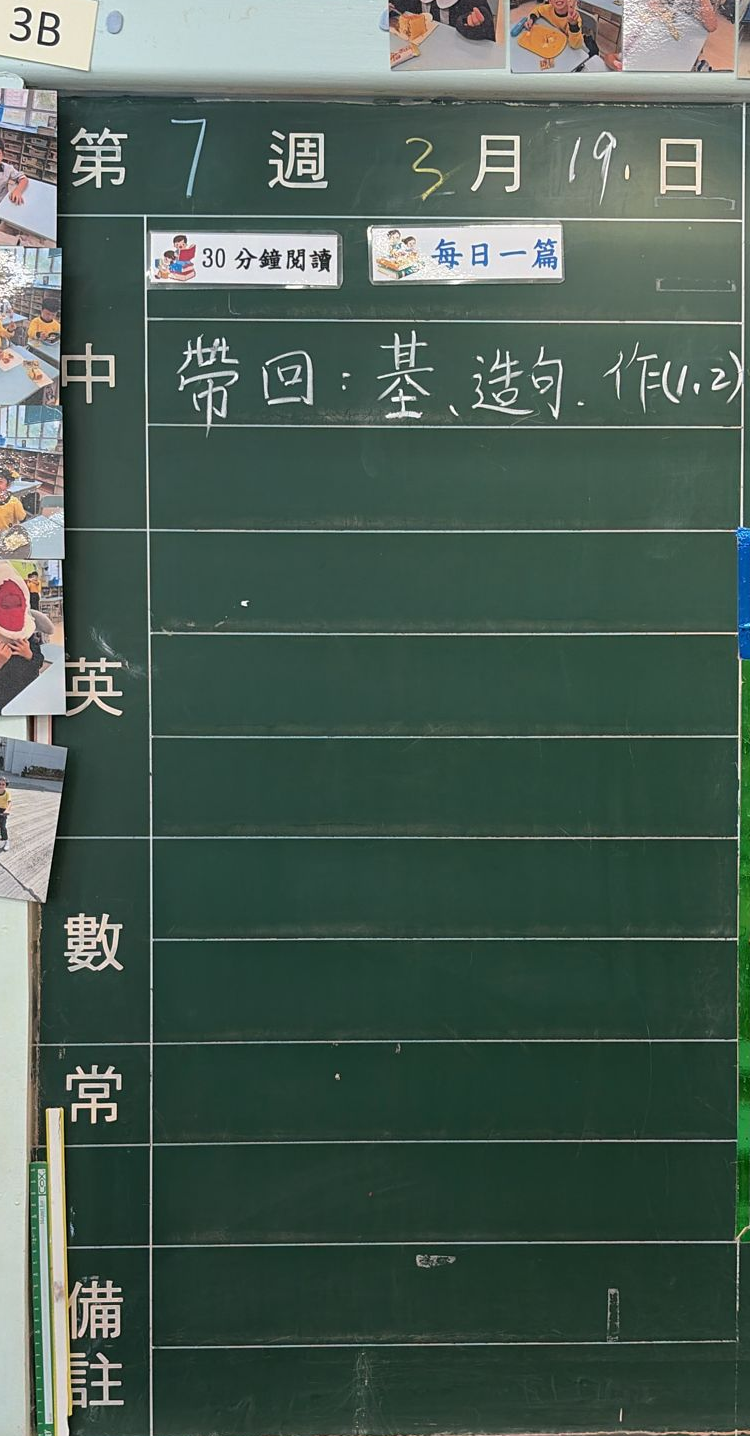 3B
第 7 週 3 月 19. 日
30 分鐘閱讀 每日一篇
中
帶回：基、造句. 作(1,2)
英
數
常
備註